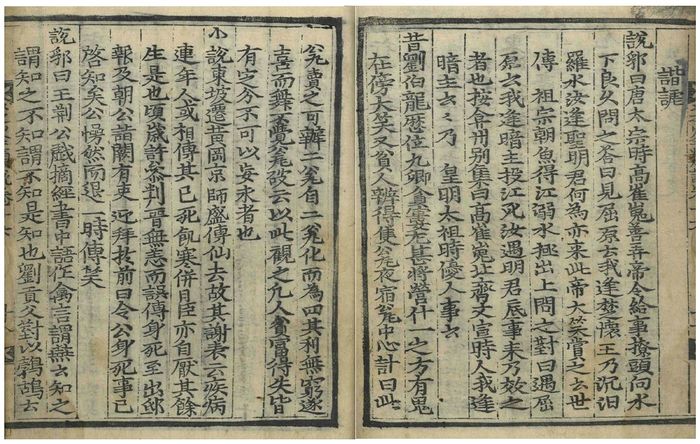 諧謔
說郛曰唐太宗時高崔嵬善弄帝令給事撩頭向水
下良久問之答曰見屈原云我逢楚懷王乃沉汨
羅水汝逢聖明君何為亦来此帝大笑賞之云世
傳 祖宗朝魚得江溺水極出上問之對曰遇屈
原云我逢暗主投江死汝遇明君底事来乃效之
者也按弇州别集曰高崔嵬北齊文宣時人我逢
暗主云云乃 皇明太祖時優人事云
昔劉伯龍歷位九卿貧窶尤甚將營什一之方有鬼
在傍大笑又貧人辦得隻瓮夜宿瓮中心計曰此
瓮賣之可辦二瓮自二瓮化而為四其利無窮遂
喜而舞不覺瓮破云以此觀之凡人貧富得失皆
有定分不可以妄求者也
小說東坡遷黃岡京師盛傳仙去故其謝表云疾病
連年人或相傳其已死飢寒併日臣亦自厭其餘
生是也頃歲許叅判晉無恙而誤傳身死至出邸
報及朝公詣闕有吏迎拜於前曰令公身死事已
啓知矣公愕然而退一時傳笑
說郛曰王荊公戲摘經書中語作禽言謂燕云知之
謂知之不知謂不知是知也劉貢父對以鵓鴣云